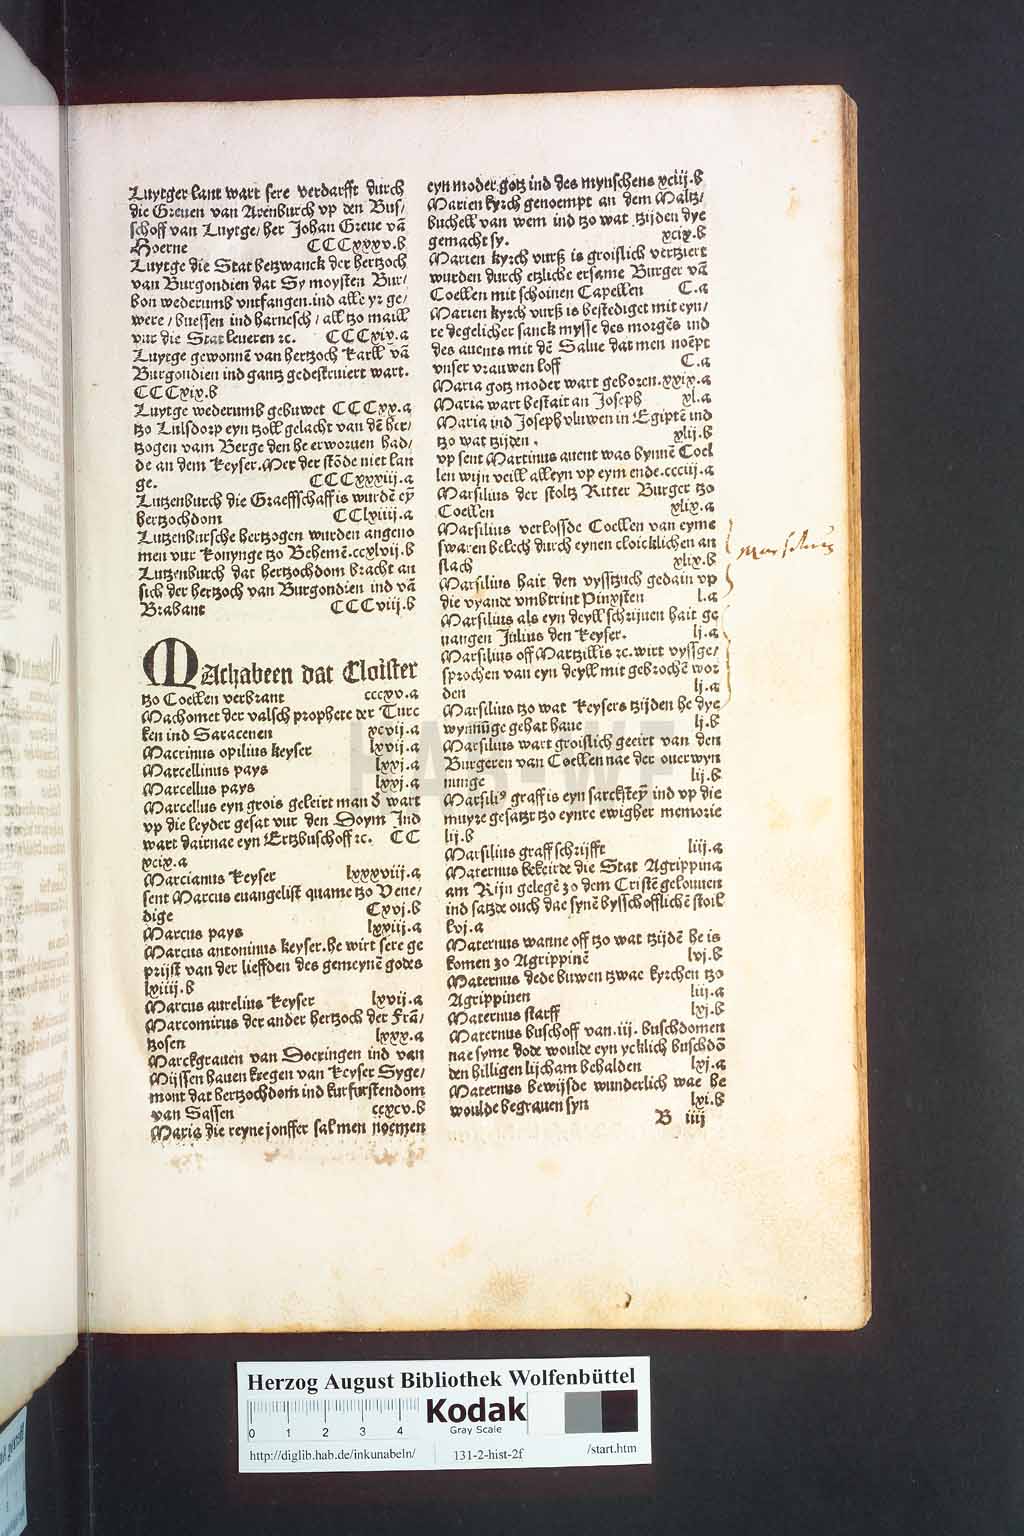 Luytger lant wart sere verdarfft durch
die Greuen van Arenburch vp den Bus/
schoff van Luytge/ her Johan Greue vā
Hoerne CCCxxxv.b
Luytge die Stat betzwanck der hertzoch
van Burgondien dat Sy moysten Bur/
bon wederumb vntfangen.ind alle yr ge/
were/ buessen ind harnesch/ all tzo maill
vur die Stat leueren ꝛc. CCCxiv.a
Luytge gewonnē van hertzoch Karll vā
Burgondien ind gantz gedestruiert wart.
CCCxix.b
Luytge wederumb gebuwet CCCxx.a
tzo Lulsdorp eyn tzoll gelacht van dē her/
tzogen vam Berge den he erworuen had/
de an dem Keyser. Mer der stōde niet lan
ge. CCCxxxiij.a
Lutzenburch die Graeffschaff is wurdē eȳ
hertzochdom CClxiiij.a
Lutzenbursche hertzogen wurden angeno
men vur Konynge tzo Behemē.ccxlvij.b
Lutzenburch dat hertzochdom bracht an
sich der hertzoch van Burgondien ind vā
Brabant CCCviij.b
MAchabeen dat Cloister
tzo Coellen verbrant cccxv.a
Machomet der valsch prophete der Turc
ken ind Saracenen xcvij.a
Macrinus opilius keyser lxvij.a
Marcellinus pays lxxj.a
Marcellus pays lxxj.a
Marcellus eyn grois geleirt man d wart
vp die leyder gesat vur den Doym Ind
wart dairnae eyn Ertzbuschoff ꝛc. CC
xcix.a
Marcianus Keyser lxxxviij.a
sent Marcus euangelist quame tzo Vene/
dige Cxvj.b
Marcus pays lxviij.a
Marcus antoninus keyser.he wirt sere ge
prijst van der lieffden des gemeynē godes
lxiiij.b
Marcus aurelius Keyser lxvij.a
Marcomirus der ander hertzoch der Frā/
tzosen lxxx.a
Marckgrauen van Doeringen ind van
Mijssen hauen kregen van Keyser Syge/
mont dat hertzochdom ind kurfurstendom
van Sassen ccxcv.b
Maria die reyne jonffer sal men noemen
eyn moder gotz ind des mynschens xciij.b
Marien kyrch genoempt an dem Maltz/
buchell van wem ind tzo wat tzijden dye
gemacht sy. xcix.b
Marien kyrch vurß is groislich vertziert
wurden durch etzliche ersame Burger vā
Coellen mit schoinen Capellen C.a
Marien kyrch vurß is bestediget mit eyn/
re degelicher sanck mysse des morgēs ind
des auents mit dē Salue dat men noēpt
vnser vrauwen loff C.a
Maria gotz moder wart geboren.xxix.a
Maria wart bestait an Joseph xl.a
Maria ind Joseph vluwen in Egiptē ind
tzo wat tzijden. xlij.b
vp sent Martinus auent was bynnē Coel
len wijn veill alleyn vp eym ende.ccciij.a
Marsilius der stoltz Ritter Burger tzo
Coellen xlix.a
Marsilius verlossde Coellen van eyme
swaren belech durch eynen cloicklichen an
slach xlix.b
Marsilius
Marsilius hait den vysstzuch gedain vp
die vyande vmbtrint Pinxsten l.a
Marsilius als eyn deyll schrijuen hait ge
uangen Julius den Keyser. lj.a
Marsilius off Martzillis ꝛc.wirt vyssge/
sprochen van eyn deyll mit gebrochē wor
den lj.a
Marsilius tzo wat Keysers tzijden he dye
wynnūge gehat haue lj.b
Marsilius wart groislich geeirt van den
Burgeren van Coellen nae der ouerwyn
nunge lij.b
Marsiliꝰ graff is eyn sarcksteȳ ind vp die
muyre gesatzt tzo eynre ewigher memorie
lij.b
Marsilius graff schrijfft liij.a
Maternus bekeirde die Stat Agrippina
am Rijn gelegē zo dem Cristē gelouuen
ind satzde ouch dae synē bysschofflichē stoil
lvj.a
Maternus wanne off tzo wat tzijdē he is
komen zo Agrippinē lvj.b
Maternus dede buwen tzwae kyrchen tzo
Agrippinen liij.a
Maternus starff lxj.b
Maternus buschoff van.iij. buschdomen
nae syme dode woulde eyn ycklich buschdō
den hilligen lijcham behalden lxj.a
Maternus bewijsde wunderlich wae he
woulde begrauen syn lxi.b
B iiij
HAB-WF
Herzog August Bibliothek Wolfenbüttel
0 1 2 3 4
Kodak
Gray Scale
http://diglib.hab.de/inkunabeln/ 131-2-hist-2f /start.htm